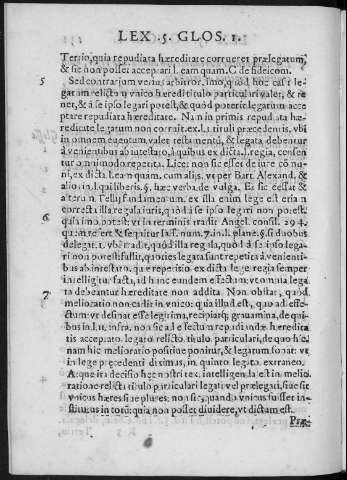 LEX .5. GLOS. 1.
Tertio, quia repudiata hæreditate corrueret prælegatum,
& sic non posset acceptari l. eam quam. C. de fideicom.
5 Sed contrarium verius arbitror, imo, quòd hoc casu le-
gatum relictum vnico hæredi titulo particulari valet, & te
net, & à se ipso legari potest, & quòd poterit legatum acce
ptare repudiata hæreditate. Nam in primis repudiata hæ-
reditate legatum non corruit. ex l.1. tituli præcedentis. vbi
in omnem euentum valet testamentũ, & legata debentur
à venientibus ab intestato, à quibus ex dicta. l. regia, censen
tur omnimodo repetita. Licet non sic esset de iure cõmu-
ni, ex dicta l. eam quam. cum alijs. vt per Bart. Alexand. &
alios in l. qui liberis. §. hæc verba. de vulga. Et sic cessat &
alterum Telli fundamentum. ex illa enim lege est etiam
correcta illa regula iuris, quòd à se ipso legari non potest.
6 quia imo potest: vt in terminis tradit Angel. consil. 294.
quam refert & sequitur Ias. num. 7. in d. l. plane. §. si duobus
delegat. 1. vbi tradit, quòd illa regula, quòd à se ipso lega-
ri non potest fallit, quoties legata sunt repetita à venienti-
bus ab intestato. quæ repetitio ex dicta lege regia semper
intelligitur facta, ad hunc eundem effectum: vt omnia lega
7 ta debeantur hæreditate non addita. Non obstat, quòd
melioratio non cadit in vnico: quia illud est, quo ad effe-
ctum: vt desinat esse legitima, recipiatq; grauamina, de qui
bus in l.11. infra. non sic ad effectum repudiandæ hæredita
tis acceptato. legato relicto. titulo particulari, de quo hîc.
nam hîc melioratio positiue ponitur, & legatum sonat: vt
in lege præcedenti diximus, in quinto legato extraneo.
Atque ita decisio hæc nostri tex. intelligenda est in melio.
ratione relicta titulo particulari legati vel prælegati, siue sit
vnicus hæres siue plures. non sic, quando vnicus fuisset in-
stitutus in totũ: quia non posset diuidere, vt dictam est.
Præ-